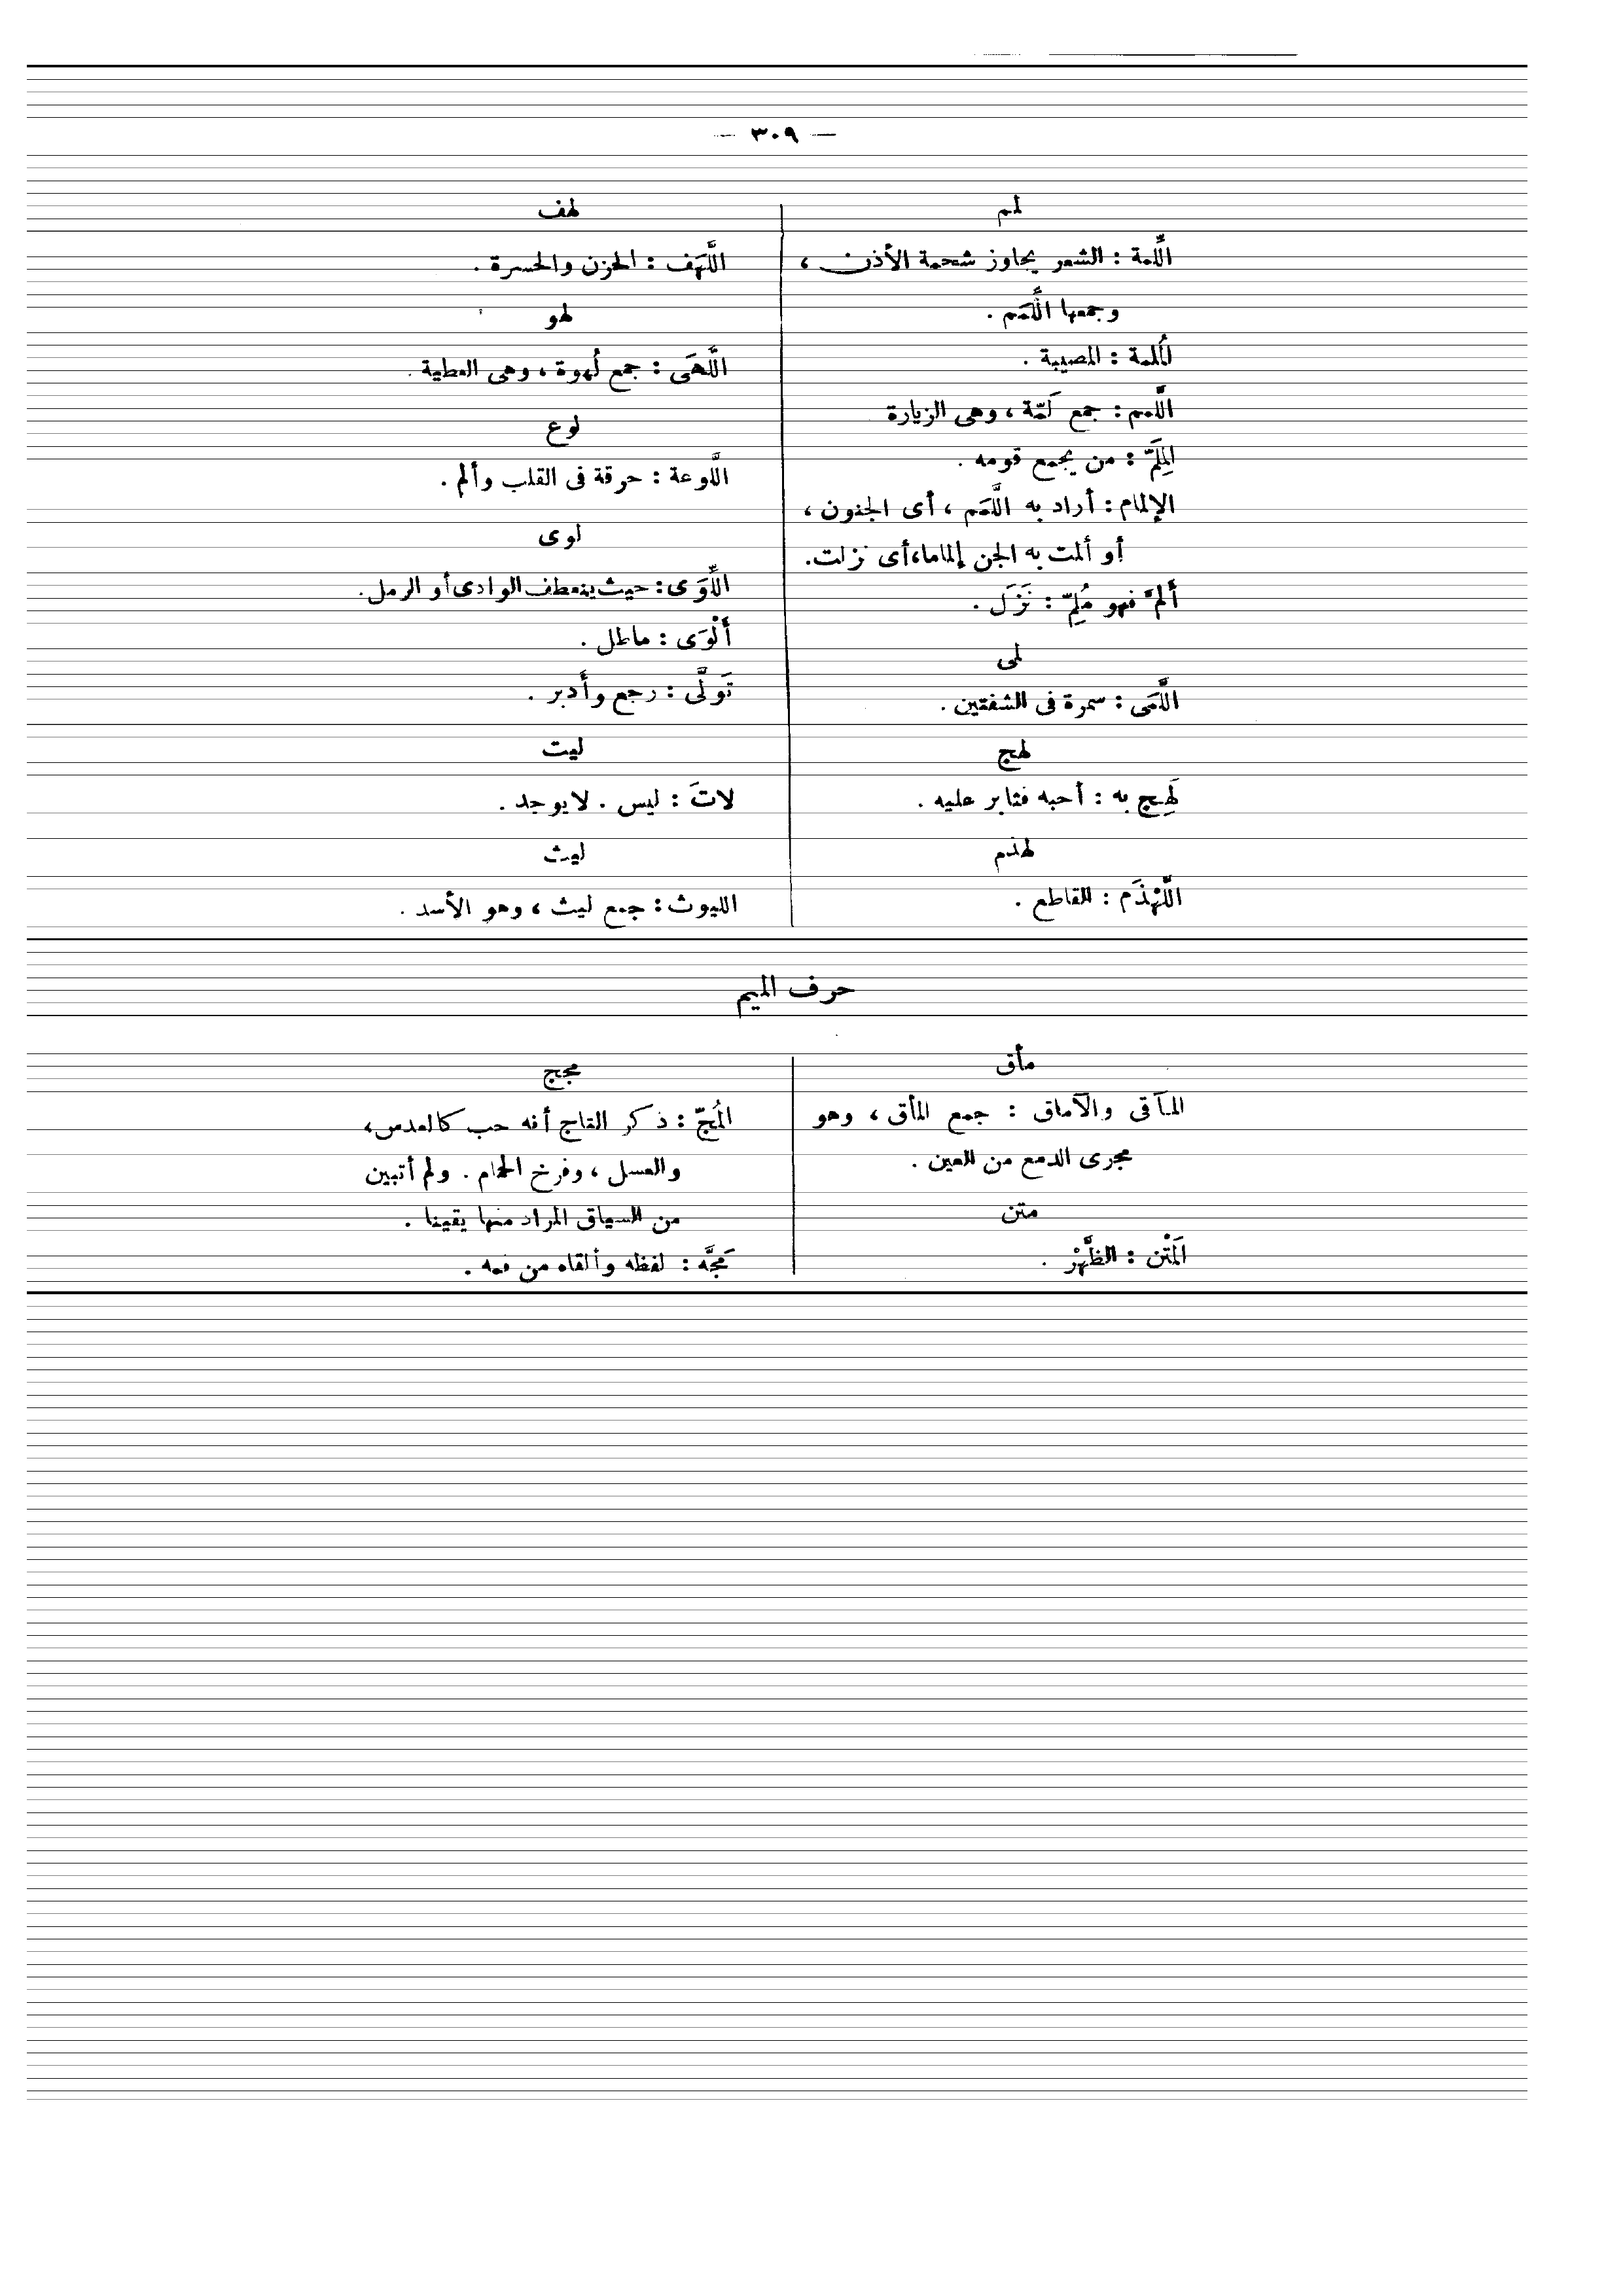 — ٣٠٩ —
لمم
اللِّمة : الشعر يجاوز شحمة الأذن ،
وجمعها اللِّمَم .
المُلمة : المصيبة .
اللَّمم : جمع لَمّة ، وهى الزيارة
المِلَمّ : من يجمع قومه .
الإلمام : أراد به اللَّمَم ، أى الجنون ،
أو ألمت به الجن إلماما، أى نزلت.
أَلمّ فهو مُلِمّ : نَزَلَ .
لمى
اللَّمَى : سمرة فى الشفتين .
لهج
لَهِج به : أحبه فثابر عليه .
لهذم
اللَّهْذَم : القاطع .
لهف
اللَّهَف : الحزن والحسرة .
لهو
اللُّهَى : جمع لُهوة ، وهى العطية .
لوع
اللَّوعة : حرقة فى القلب وألم .
لوى
اللِّوَى : حيث ينعطف الوادى أو الرمل.
أَلْوَى : ماطل .
تَوَلَّى : رجع وأَدبر .
ليت
لاتَ : ليس . لا يوجد .
ليث
الليوث : جمع ليث ، وهو الأسد .
حرف الميم
مأق
المـآقى والآماق : جمع المأق ، وهو
مجرى الدمع من العين .
متن
المَتْن : الظَّهْر .
مجج
المُجّ : ذكر التاج أنه حب كالعدس،
والعسل ، وفرخ الحمام . ولم أتبين
من السياق المراد منها يقينا .
مَجَّه : لفظه وألقاه من فمه .